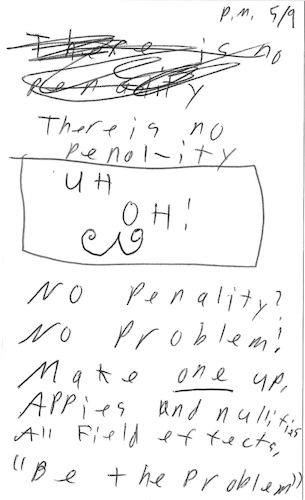 P.M. 5/9
There is no
penality
There is no
Penal-ity
UH
OH!
No Penality?
No Problem!
Make one up,
APPies and nullifies
All Field effects,
"Be the Problem"